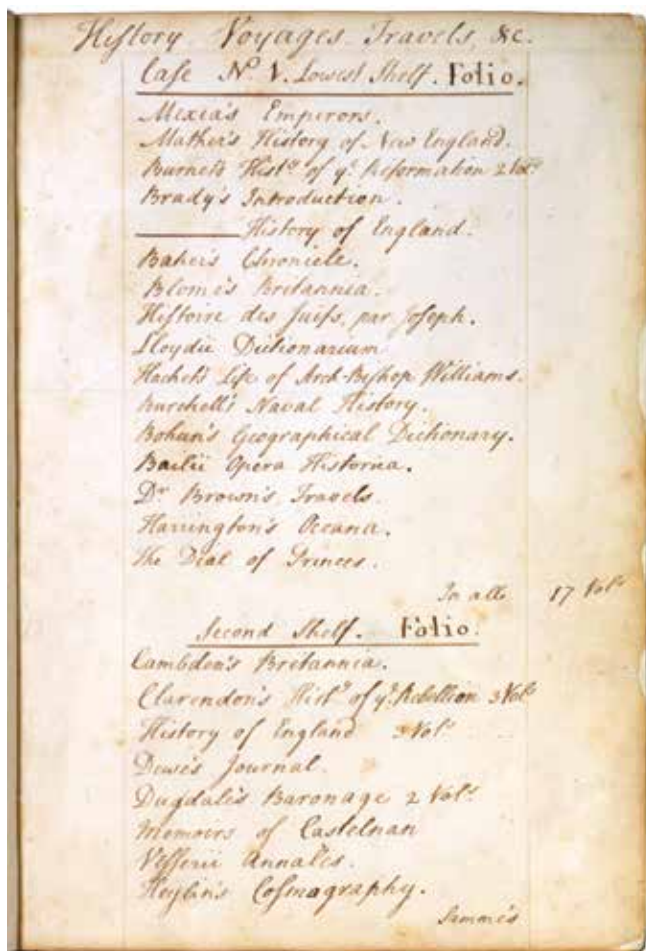 History Voyages Travels, &c.
Case No. 1. Lowest Shelf. Folio.
Mexia's Emperors.
Mather's History of New England.
Burnet's Histy. of ye. Reformation 2 Vols
Brady's Introduction.
——— History of England.
Baker's Chronicle.
Blome's Britannia.
Histoire des Juifs, par Joseph.
Lloydii Dictionarium
Hacket's Life of Arch-Bishop Williams.
Burchell's Naval History.
Bohun's Geographical Dictionary.
Bailii Opera Historica.
Dr Brown's Travels.
Harrington's Oceana.
The Dial of Princes.
In all 17 Vols
Second Shelf. Folio.
Cambden's Britannia.
Clarendon's Histy. of ye. Rebellion 3 Vols
History of England 3 Vols
Dewe's Journal.
Dugdale's Baronage 2 Vols.
Memoirs of Castelnau
Usserii Annales.
Heylin's Cosmography.
Samme's